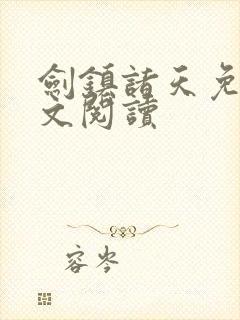 劍鎮諸天免
文閱讀
容岑